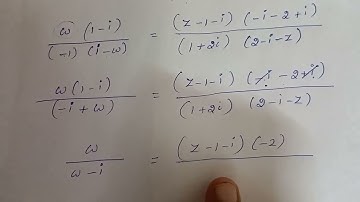 ω (1-i) / (-1) (i-ω) = (z-1-i) (-i-2+i) / (1+2i) (2-i-z)
ω(1-i) / (-i+ω) = (z-1-i) (-i-2+i) / (1+2i) (2-i-z)
ω / ω-i = (z-1-i) (-2) /